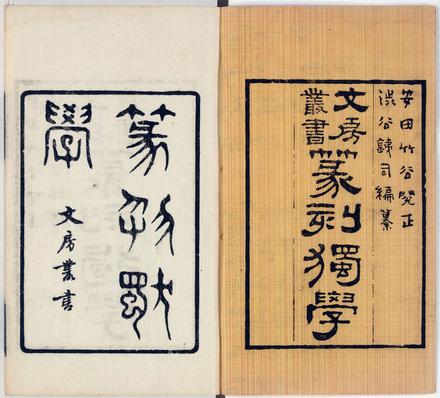 安田竹谷閲正
澁谷錬司編纂
文房
叢書
篆刻獨學
篆刻獨
學
文房叢書